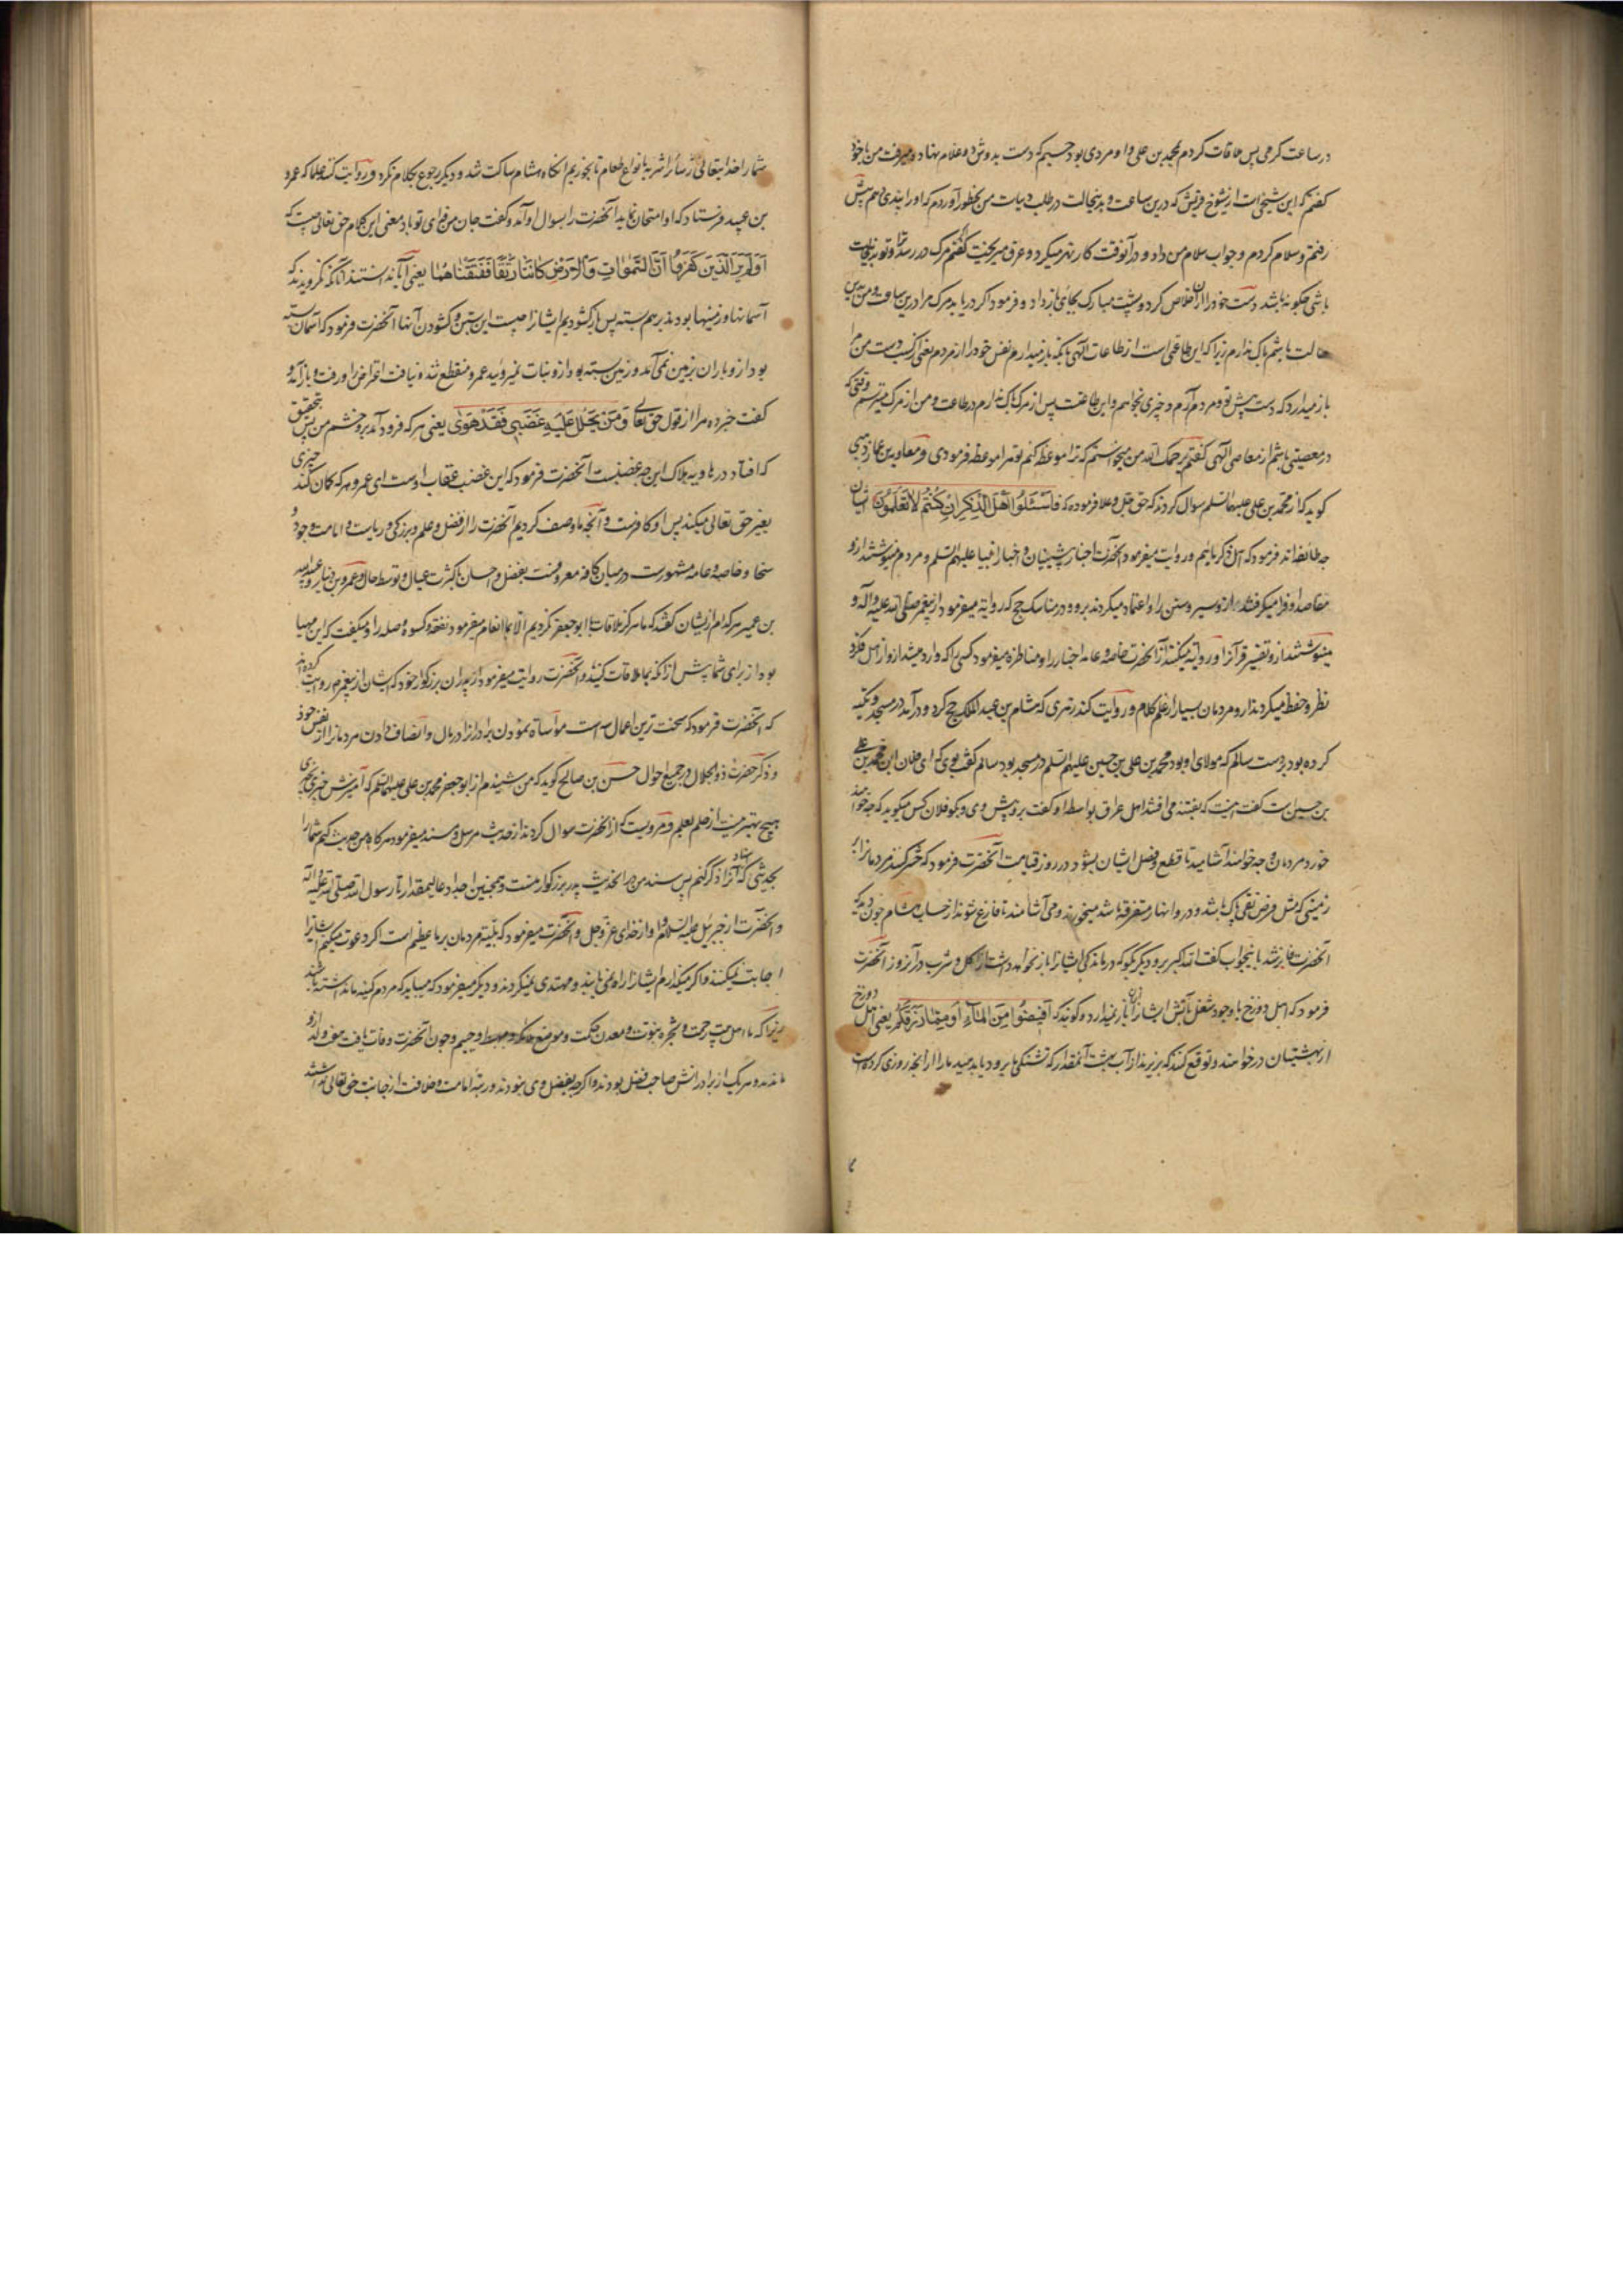 در ساعت گرمی پس ملاقات کردم محمد بن علی و او مردی بود جسیم که دست بدوش دو غلام نهاده و میرفت من با خود
گفتم که این شیخی است از شیوخ قریش که درین ساعت و بدینحالت در طلب دنیاست من بخطور آوردم که او را پندی دهم پیش
رفتم و سلام کردم و جواب سلام من داد و در آنوقت کار نهر میکرد و عرق میریخت گفتم که مرگ در رسد ترا و تو بدینحالت
باشی چگونه باشد دست خود را از آن خلاص کرد و پشت مبارک بجائی باز داد و فرمود اگر دریابد مرگ مرا درین ساعت و من بدین
حالت باشم باک ندارم زیرا که این طاعتی است از طاعات الهی بآنکه باز میدارم نفس خود را از مردم یعنی اگر کسب دست من مرا
باز میدارد که دست پیش تو و مردم آرم و چیزی نخواهم و این طاعتست پس از مرگ باک ندارم در طاعت و من از مرگ میترسم وقتی که
در معصیتی باشم از معاصی الهی گفتم یرحمک الله من میخواستم که ترا موعظه کنم تو مرا موعظه فرمودی و معاویه بن عمار دهنی
گوید که از محمد بن علی علیهما السلم سؤال کردند که حق جل و علا فرموده که فَاسْئَلُوا اَهْلَ الذِّکْرِ اِنْ کُنْتُمْ لا تَعْلَمُونَ ایشان
چه طائفه‌اند فرمود که اهل ذکر مائیم و روایت میفرمود آنحضرت اخبار پیشینیان و اخبار انبیا علیهم السلم و مردم مینوشتند ازو
مغاصد او فرا میگرفتند ازو سیر و سنن را و اعتماد میکردند برو و در مناسک حج که روایة میفرمود از پیغمبر صلی الله علیه و آله و
مینوشتند ازو تفسیر قرآنرا و روایة میکنند از آنحضرت خاصه و عامه اخبار را و مناظره میفرمود کسی را که وارد میشد ازو از اهل فکر و
نظر و حفظ میکردند ازو مردمان بسیار از علم کلام و روایت کند زهری که هشام بن عبد الملک حج کرد و در آمد در مسجد و تکیه
کرده بود بر دست سالم که مولای او بود محمد بن علی بن حسین علیهم السلم در مسجد بود سالم گفت بوی که ای فلان این محمد بن علی
بن حسین است گفت اینست که بفتنه می افتند اهل عراق بواسطه او گفت برو پیش وی و بگو فلان کس میگوید که چه خواهند
خورد مردمان و چه خواهند آشامید تا قطع و فصل ایشان بشود در روز قیامت آنحضرت فرمود که حشر کنند مردمانرا بر
زمینی که مثل قرص نقی پاک باشد و درو انهار متفرقه باشد میخورند و می آشامند تا فارغ شوند از حساب هشام چون دید که
آنحضرت غالب شد باینجواب گفت الله اکبر برو دیگر بگو که درماندگی ایشانرا باز نخواهد داشت از اکل و شرب در آنروز آنحضرت
فرمود که اهل دوزخ با وجود شغل بآتش ایشانرا از آن باز نمیدارد و گویند که اَفِیضُوا عَلَیْنا مِنَ الْمَاءِ اَوْ مِمَّا رَزَقَکُمْ یعنی اهل دوزخ
از بهشتیان درخواهند و توقع کنند که بریزند از آب بهشت آنمقدار که تشنگی ما برود یا بدهید ما را از آنچه روزی کرده است
شما را خدایتعالی از سائر اشربه یا انواع طعام تا بخوریم آنگاه هشام ساکت شد و دیگر رجوع بکلام نکرد و روایت کنند علما که عمرو
بن عبید فرستاد که او امتحان نماید آنحضرت را بسؤال او آمد و گفت جان من فدای تو باد معنی این کلام حق تعالی چیست که
اَوَلَمْ یَرَ الَّذِینَ کَفَرُوا اَنَّ السَّمٰوٰاتِ وَالْاَرْضَ کَانَتَا رَتْقًا فَفَتَقْنَاهُمَا یعنی آیا ندانستند آنانکه نگرویدند که
آسمانها و زمینها بودند برهم بسته پس بازگشودیم ایشانرا چیست این بستن و گشودن آنها آنحضرت فرمود که آسمان بسته
بود ازو باران بزمین نمی آمد و زمین بسته بود ازو نبات نمیروئید عمرو منقطع شد و نیافت اعتراض را و رفت و باز آمد و
گفت خبر ده مرا از قول حق تعالی وَمَنْ یَحْلِلْ عَلَیْهِ غَضَبِی فَقَدْ هَوٰی یعنی هر که فرود آمد برو خشم من پس بتحقیق
که افتاد در هاویه هلاک این چه غضبست آنحضرت فرمود که این غضب عقاب اوست ای عمرو هر که گمان کند که چیزی
تغییر حق تعالی میکند پس او کافرست و آنچه ما وصف کردیم آنحضرت را از فضل و علم و بزرگی و ریاست و امامت و جود و
سخا و خاصه و عامه مشهورست در میان کافه معروفست بفضل و احسان با کثرت عیال و توسط حال و عمرو بن دینار و عبید الله
بن عمیر هر کدام ازیشان گفتند که ما هرگز ملاقات با ابو جعفر نکردیم الا بما انعام میفرمود نفقه و کسوه و صله را و میگفت که این مهیا
بود از برای شما پیش از آنکه بما ملاقات کنید و آنحضرت روایت میفرمود از پدران بزرگوار خود که ایشان از پیغمبر ص روایت کرده‌اند
که آنحضرت فرمود که سخت ترین اعمال سه است مواساة نمودن برادرانرا در مال و انصاف دادن مردمانرا از نفس خود
و ذکر حضرت ذو الجلال در جمیع احوال حسن بن صالح گوید که من شنیدم از ابو جعفر محمد بن علی علیهما السلم که آمیزش چیزی بچیزی
هیچ بهتر نیست از حلم بعلم و مرویست که از آنحضرت سؤال کردند از حدیث مرسل و مسند میفرمود هر گاه من حدیث کنم شما را
بحدیثی که اسناد آنرا ذکر نکنم پس سند من در آنحدیث پدر بزرگوار منست و همچنین اجداد عالیمقدار تا رسول الله صلی الله علیه و آله
و آنحضرت از جبرئیل علیه السلام و او از خدای عز و جل و آنحضرت میفرمود که بلیه مردمان بر ما عظیم است اگر دعوت میکنیم ایشانرا
اجابت نمیکنند و اگر میگذارم ایشانرا راه نمی یابند و مهتدی نمیگردند و دیگر میفرمود که میباید که مردم کینه ما نداشته باشند
زیرا که ما اهل بیت رحمت و شجره نبوت و معدن حکمت و موضع ملائکه و مهبط وحییم و چون آنحضرت وفات یافت هفت ولد ازو
ماندند و هر یک از برادرانش صاحب فضل بودند و اگر چه بفضل وی نبودند و رتبه امامت و خلافت از جانب حق تعالی نداشتند